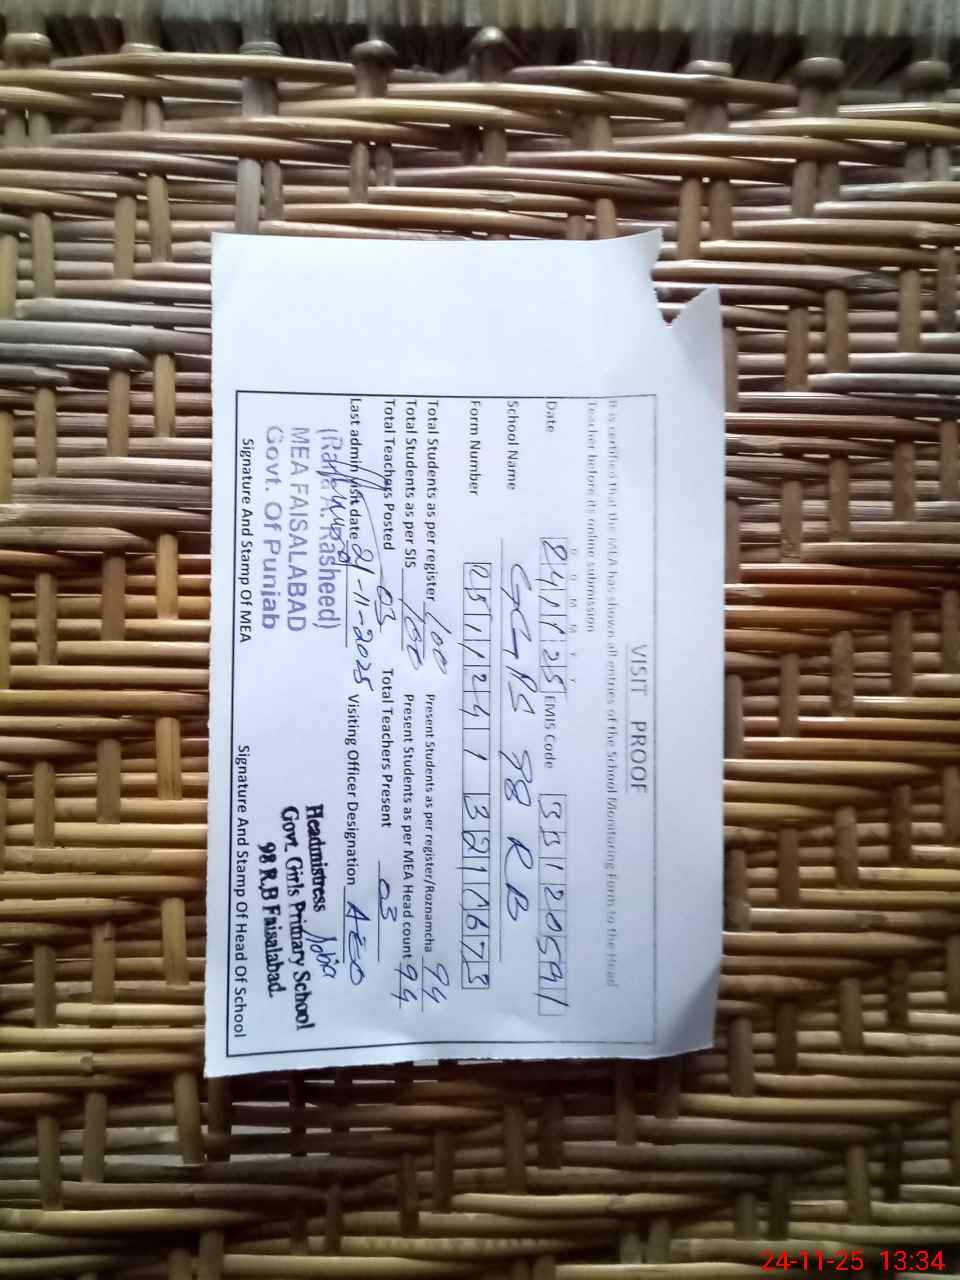 VISIT PROOF
It is certified that the MEA has shown all entries of the School Monitoring Form to the Head
Teacher before its online submission
D D M M Y Y
Date 241125 EMIS Code 33120591
School Name GGPS 98 RB
Form Number
Total Students as per register 100 Present Students as per register/Roznamcha 94
Total Students as per SIS 100 Present Students as per MEA Head count 94
Total Teachers Posted 03 Total Teachers Present 03
Last admin visit date 21-11-2025 Visiting Officer Designation AEO
(Rana A. Rasheed)
MEA FAISALABAD
Govt. Of Punjab
Headmistress
Govt. Girls Primary School
98 R.B Faisalabad.
Signature And Stamp Of MEA Signature And Stamp Of Head Of School
24-11-25 13:34